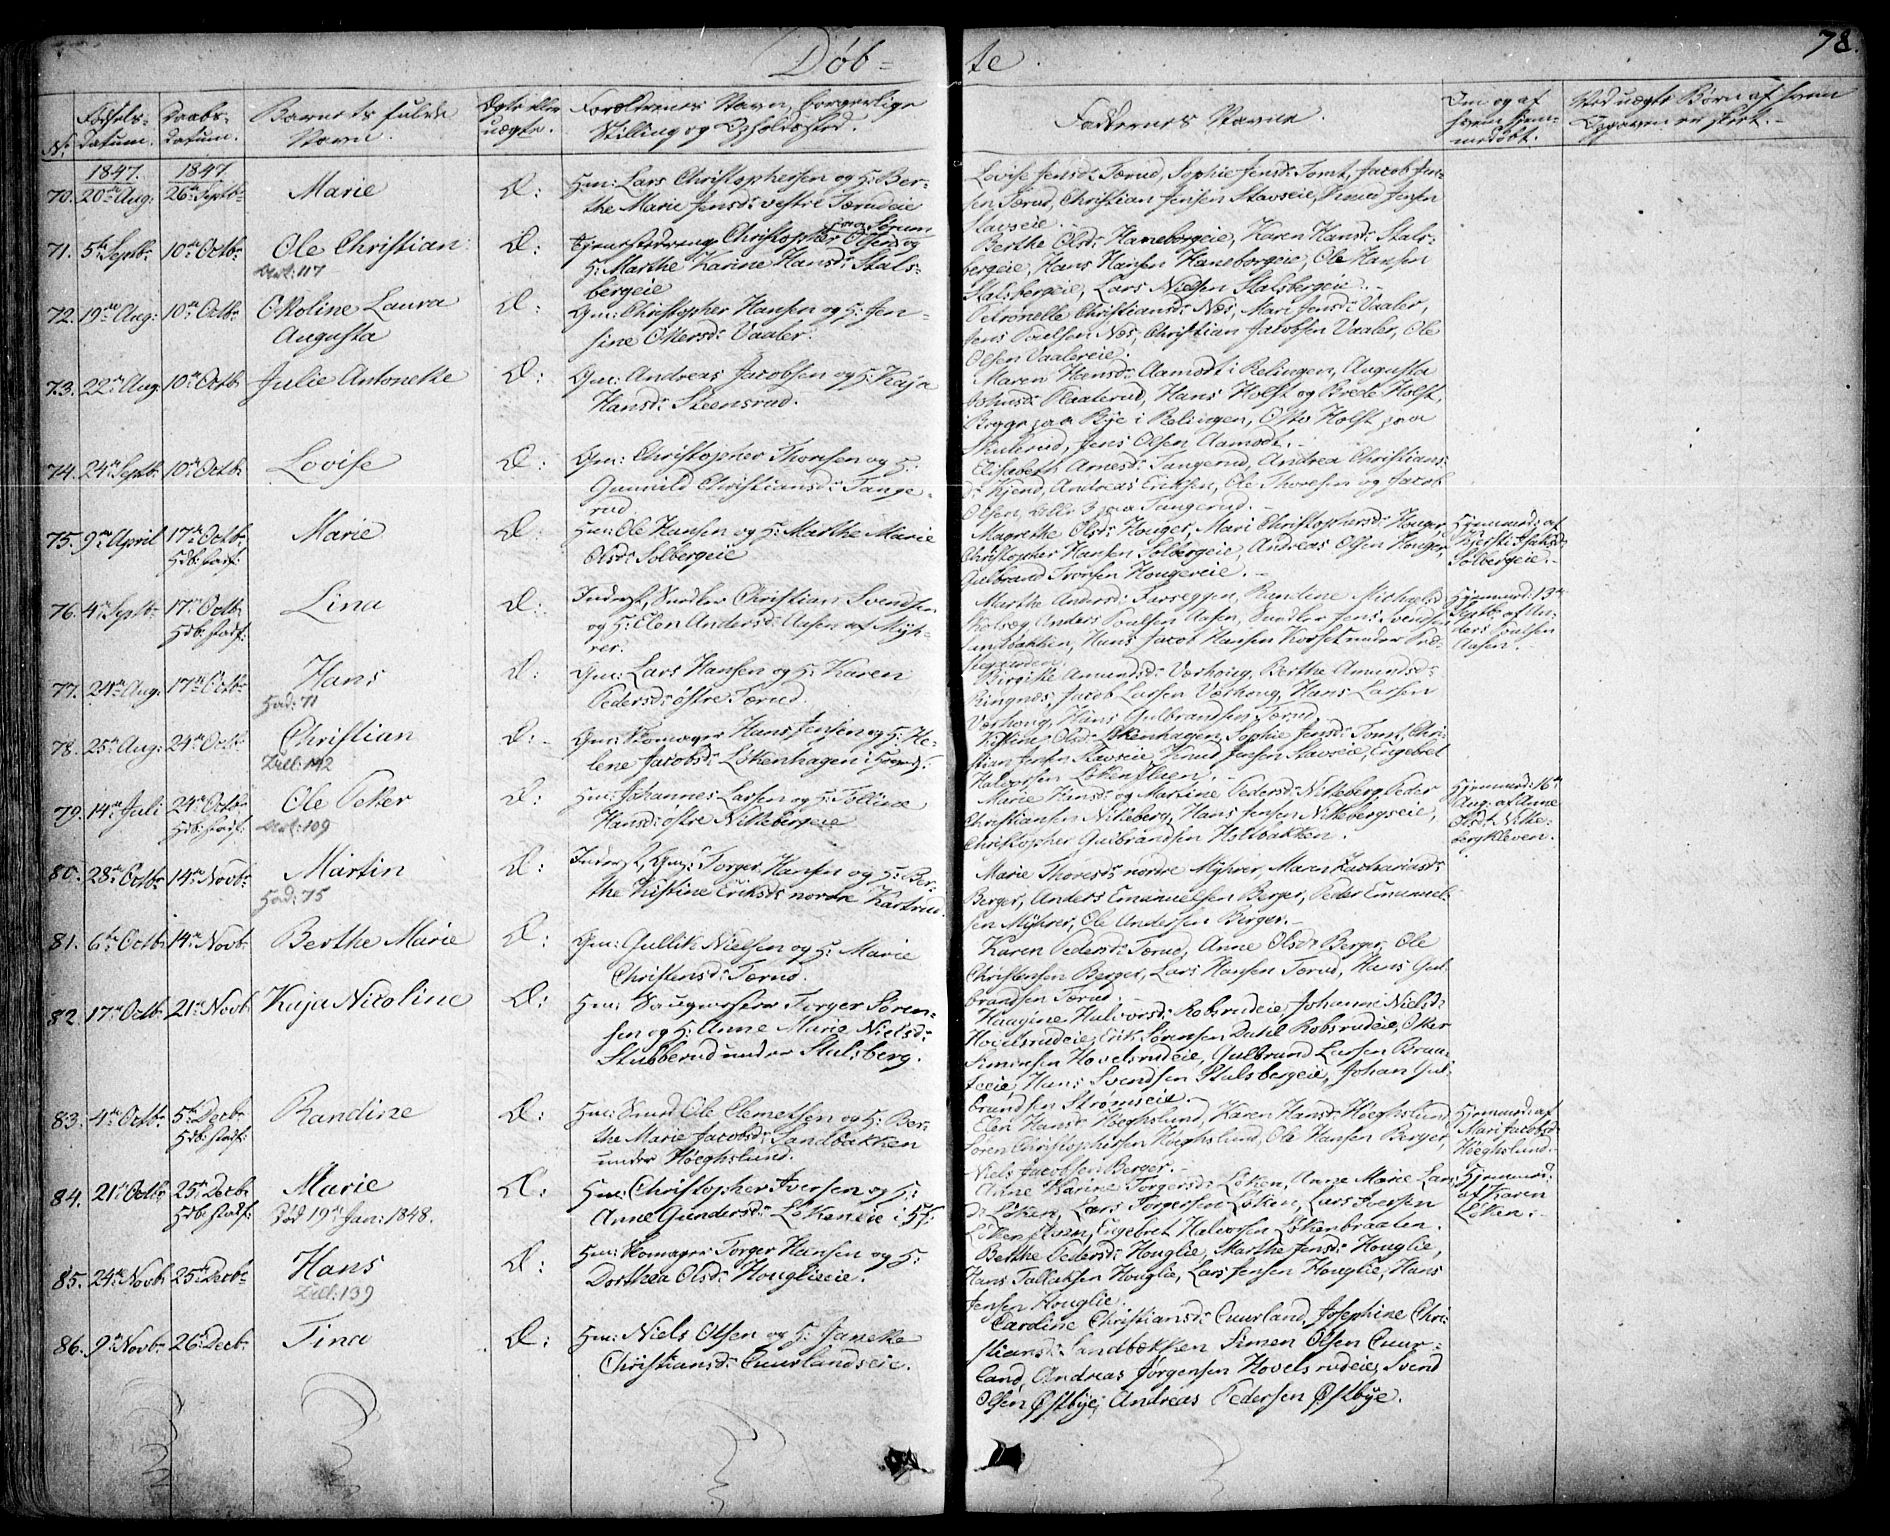 Døb-
te.
78.
No
Fødsels-
Datum.
Daabs-
Datum.
Barnets fulde
Navn.
Ægte eller
uægte.
Forældrenes Navn, borgerlige
Stilling og Opholdssted.
Faddernes Navne.
Om og af
hvem hjem-
medøbt.
Ved uægte Børn af hvem
Opgaven er skeet.-
1847.
1847.
70. 20de Aug: 26de Septbr
Marie
Æ:
Hm: Lars Christophersen og H: Ber-
the Marie Jensdr: vestre Tærudeie
Lovise Jensdr: Tærud, Sophie Jensdr: Tomt, Jacob Jen-
sen Tærud, Christian Jensen Stavseie, Knud Jensen
Stavseie.
71. 5te Septbr 10de Octbr
Ole Christian
117
Æ:
paa Sørum
Tjenestedreng Christopher Olsen og
H: Marthe Karine Hansdr: Stals-
bergeie
Berthe Olsdr: Haneborgeie, Karen Hansdr: Stals-
bergeie, Hans Hansen Haneborgeie, Ole Hansen
Stalsbergeie, Lars Nielsen Stalsbergeie.-
72. 19de Aug: 10de Octbr
Oteline Laura
Augusta
Æ:
Gm: Christopher Hansen og H: Jen-
sine Ottersdr: Vaaler.
Petronelle Christiansdr: Næs, Mari Jensdr: Vaaler,
Jens Poulsen Næs, Christian Jacobsen Vaaler, Ole
Olsen Vaalereie.
73. 22de Aug: 10de Octbr
Julie Antonette
Æ:
Gm: Andreas Jacobsen og H: Kaja
Hansdr: Steensrud.
Maren Hansdr: Aamodt i Relingen, Augusta
Hans Holst og Brede Holst,
paa Bye i Relingen, Otto Holst paa
Skulerud, Jens Olsen Aamodt.-
74. 24de Septbr 10de Octbr
Lovise
Æ:
Gm: Christopher Thoresen og H:
Gunnild Christiansdr: Tange-
rud.
Elisabeth Arnesdr: Tangerud, Andrea Christians-
dr: Kjend, Andreas Eriksen, Ole Thoresen og Jacob
Olsen, alle 3 paa Tangerud.-
75. 9de April 17de Octbr
Hdb: stadf:
Marie
Æ:
Hm: Ole Hansen og H: Marthe Marie
Olsdr: Solbergeie
Magrethe Olsdr: Houger, Mari Christophersdr: Houger,
Christopher Hansen Solbergeie, Andreas Olsen Houger,
Gulbrand Iversen Hougereie.-
Hjemmed: af
Kjersti Isaksdr
Solbergeie.-
76. 4de Septbr 17de Octbr
Hdb: stadf:
Lina
Æ:
Inderst, Snedker Christian Svendsen
og H: Elen Andersdr: Aasen af Myh-
rer.
Marthe Andersdr: Farseggen, Randine Michelsdr
Anders Poulsen Aasen, Snedker Jens Svendsen
Sandbakken, Hans Jacob Hansen Korset under Præ-
stegaarden.
Hjemmed: 13de
Septbr af An-
ders Poulsen
Aasen.-
77. 24de Aug: 17de Octbr
Hans
Had: 71
Æ:
Gm: Lars Hansen og H: Karen
Pedersdr: østre Tærud.
Birgitte Amundsdr: Værhoug, Berthe Amundsdr:
Ringnæs, Jacob Larsen Værhoug, Hans Larsen
Værhoug, Hans Gulbrandsen Tærud.
78. 25de Aug: 24de Octbr
Christian
Lill: 142
Æ:-
Gm: Skomager Hans Jensen og H: He-
lene Jacobsdr: Løkenhagen
Kistine Olsdr: Løkenhagen, Sophie Jensdr: Tomt, Chri-
stian Jensen Stavseie, Knud Jensen Stavseie, Engebret
Halvorsen Løkenstuen.-
79. 14de Juli 24de Octbr
Hdb: stadf:
Ole Peter
109
Æ:
Hm: Johannes Larsen og H: Polline
Hansdr: østre Nittebergeie
Marie Hansdr: og Martine Pedersdr: Nitteberg, Peder
Christiansen Nitteberg, Hans Jensen Nittebergseie,
Christopher Gulbrandsen Holtbakken.
Hjemmed: 16de
Aug: af Anne
Olsdr: Nitte-
bergkleven.
80. 28de Octbr 14de Novbr
Martin
Had: 75
Æ:
Inderst, Gm: Torger Hansen og H: Ber-
the Kistine Eriksdr: nordre Kartrud.
Marie Thoresdr: nordre Myhrer, Maren Zachariasdr:
Berger, Anders Emanuelsen Berger, Peder Emanuel-
sen Myhrer, Ole Andersen Berger.-
81. 6te Octbr 14de Novbr
Berthe Marie
Æ:
Gm: Gullik Nielsen og H: Marie
Christensdr: Tærud.
Karen Pedersdr: Tærud, Anne Olsdr: Berger, Ole
Christensen Berger, Lars Hansen Tærud, Hans Gul-
brandsen Tærud.
82. 17de Octbr 21de Novbr
Kaja Nicoline
Æ:
Hm: Saugmester Torger Søren-
sen og H: Anne Marie Nielsdr:
Stubberud under Stalsberg.
Haagine Halvorsdr: Robsrudeie, Johanne Nielsdr:
Hovelsrudeie, Erik Sørensen Dahl Robsrudeie, Otter
Simensen Hovelsrudeie, Gulbrand Larsen Braa-
teeie, Hans Svendsen Stalsbergeie, Johan Gul-
brandsen Strømseie.
83. 4de Octbr 5te Decbr
Hdb: stadf:
Randine
Æ:
Hm: Smed Ole Clemetsen og H: Ber-
the Marie Jacobsdr: Sandbækken
under Høeghslund.
Elen Hansdr: Høeghslund, Karen Hansdr: Høeghslund,
Søren Christophersen Høeghslund, Ole Hansen Berger,
Niels Jacobsen Berger.-
Hjemmed: af
Mari Jacobsdr
Høeghslund.-
84. 21de Octbr 25de Decbr
Hdb: stadf:
Marie
Død 19de Jan: 1848.
Æ:
Hm: Christopher Iversen og H:
Anne Gundersdr: Løkeneie i Hf.
Anne Karine Torgersdr: Løken, Anne Marie Lars-
dr: Løken, Lars Torgersen Løken, Lars Iversen
Løkenstuen, Engebret Halvorsen Løkenbraaten.
Hjemmed:
af Karen
Løken.-
85. 24de Novbr 25de Decbr
Hans
Lill: 139
Æ:
Hm: Skomager Torger Hansen og H:
Dorthea Olsdr: Houglieeie.
Berthe Pedersdr: Houglie, Marthe Jensdr: Houglie,
Hans Tallaksen Houglie, Lars Jensen Houglie, Hans
Jensen Houglie.
86. 9de Novbr 26de Decbr
Tina
Æ:
Hm: Niels Olsen og H: Janette
Christiansdr: Cuurlandseie.
Cardine Christiansdr: Cuurland, Josephine Chri-
stiansdr: Sandbækken, Simen Olsen Cuur-
land, Andreas Jørgensen Hovelsrudeie, Svend
Olsen Østbye, Andreas Pedersen Østbye.